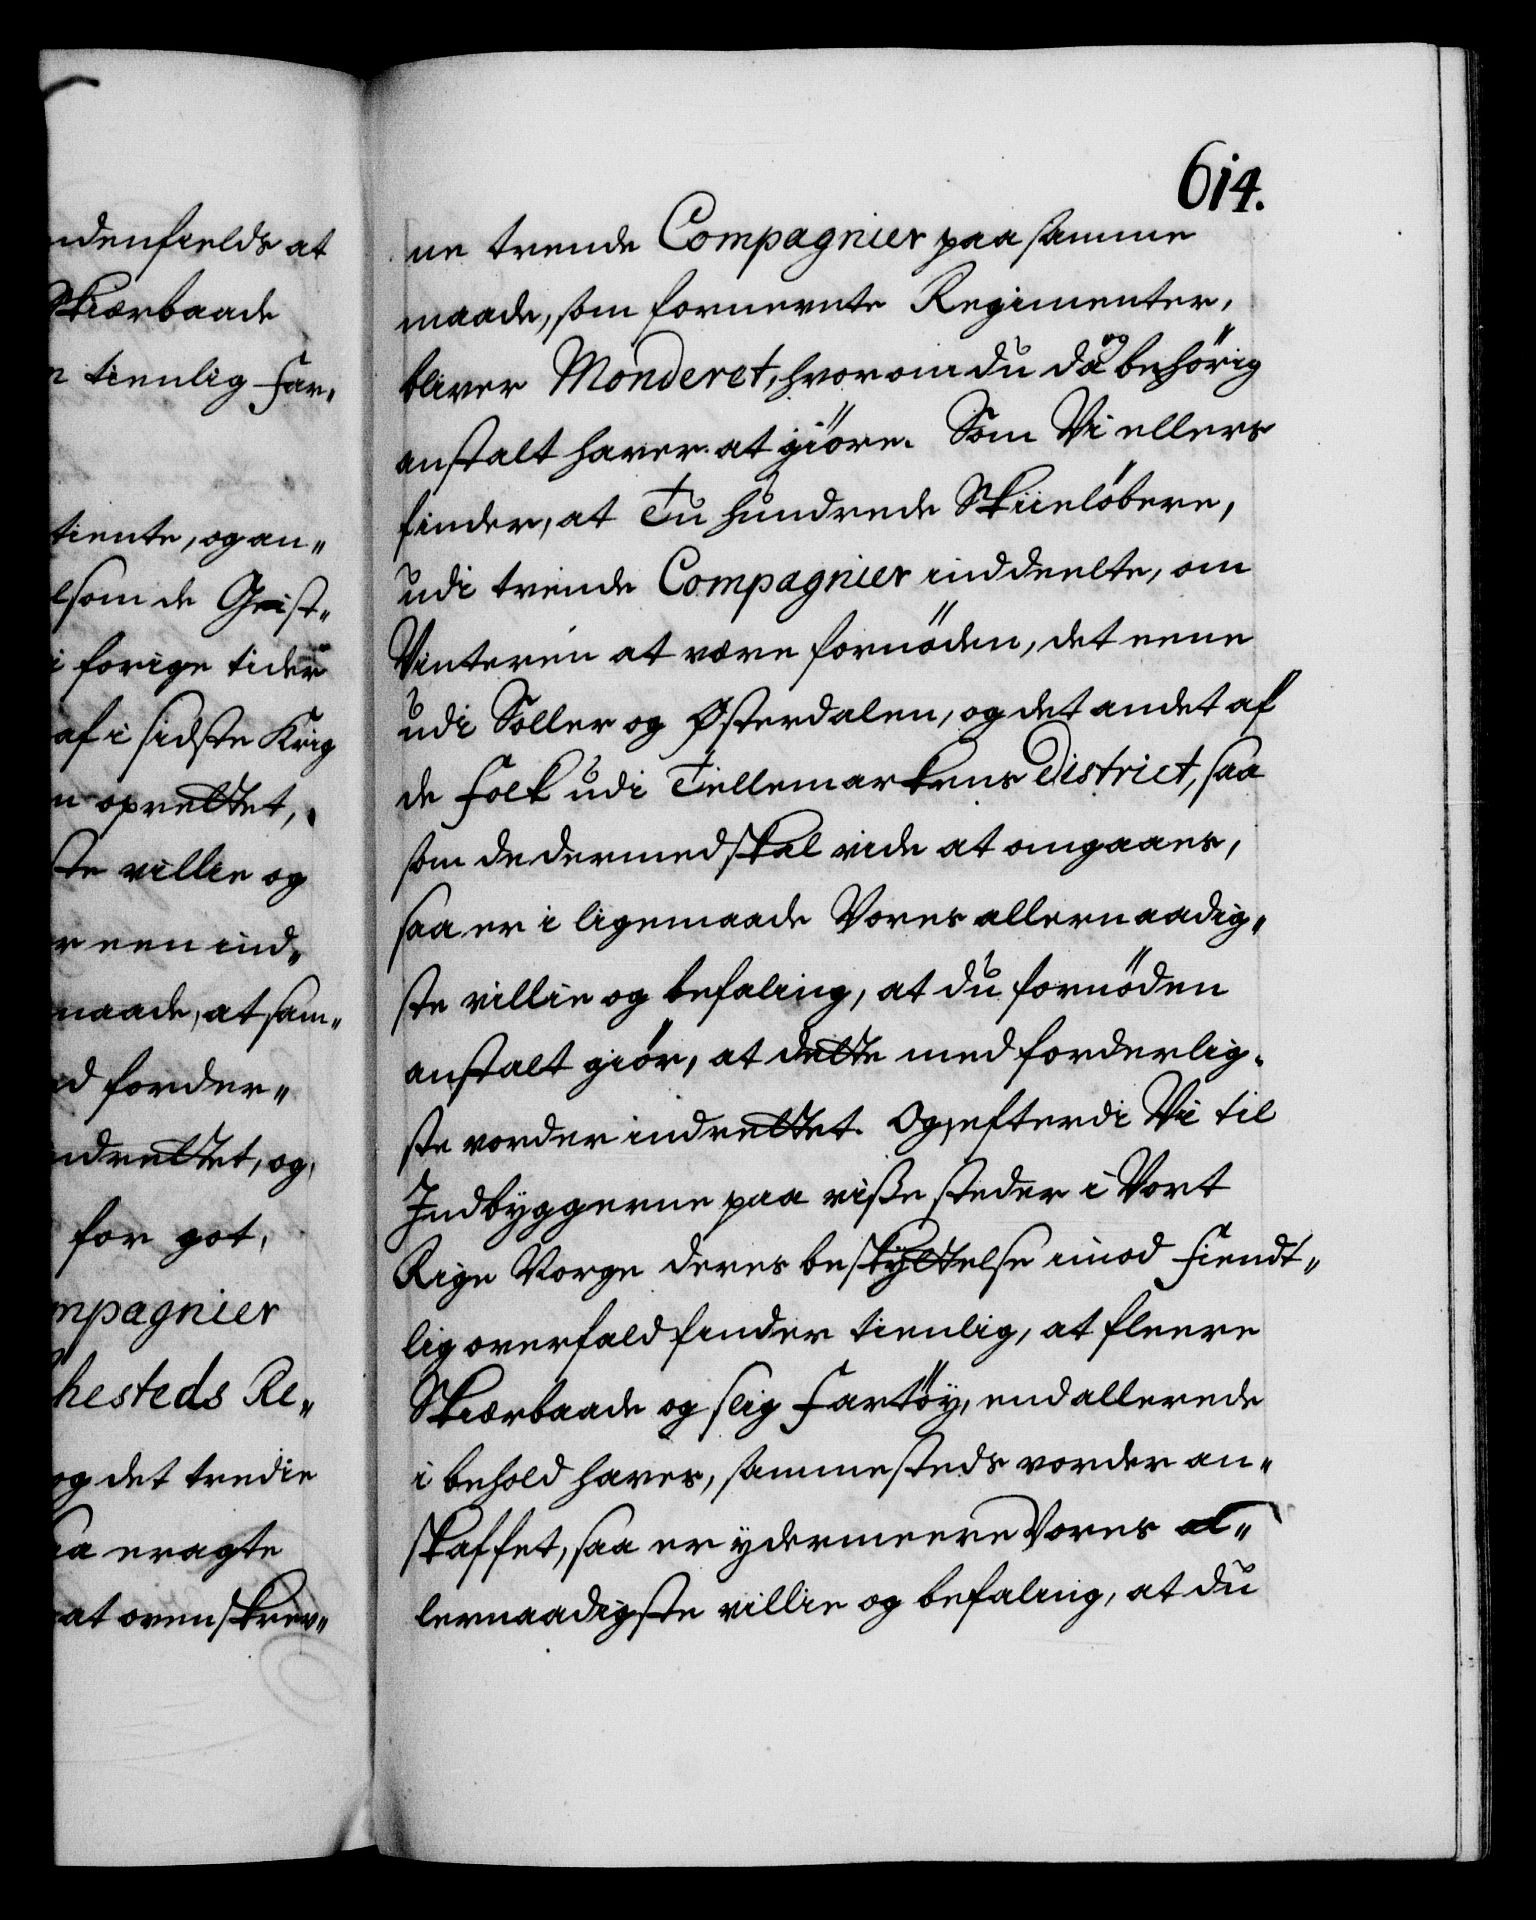 614.
ndenfields at
Skiærbaade
n tienlig Far„
tiente, og an„
lsom de Geist„
i forige tider
af i sidste Krig
n oprettet,
ste villie og
r een ind„
maade, at sam„
d forder„
ndrettet, og
for got,
mpagnier
hesteds Re„
og det tredie
aa eragte
at ovenskrev„
ne trende Compagnier paa samme
maade, som fornevnte Regimenter,
bliver Monderet, hvorom du da og behörig
anstalt haver at giöre. Som Vi ellers
finder, at Tu hundrede Skiielöbere,
udi trende Compagnier inddeelte, om
Vinteren at være fornöden, det eene
udi Soller og Østerdalen, og det andet af
de Folk udi Tellemarkens District, saa
som de dermed skal vide at omgaaes,
saa er i ligemaade Vores allernaadig„
ste villie og befaling, at du fornöden
anstalt giör, at dette med forderlig„
ste vorder indrettet. Og efterdi Vi til
Indbyggerne paa viße steder i Vort
Rige Norge deres beskyttelse imod Fiendt„
lig overfald finder tienlig, at fleere
Skiærbaade og slig Fartöy, end allerede
i behold haves, sammesteds vorder an„
skaffet, saa er ydermeere Vores al„
lernaadigste villie og befaling, at du